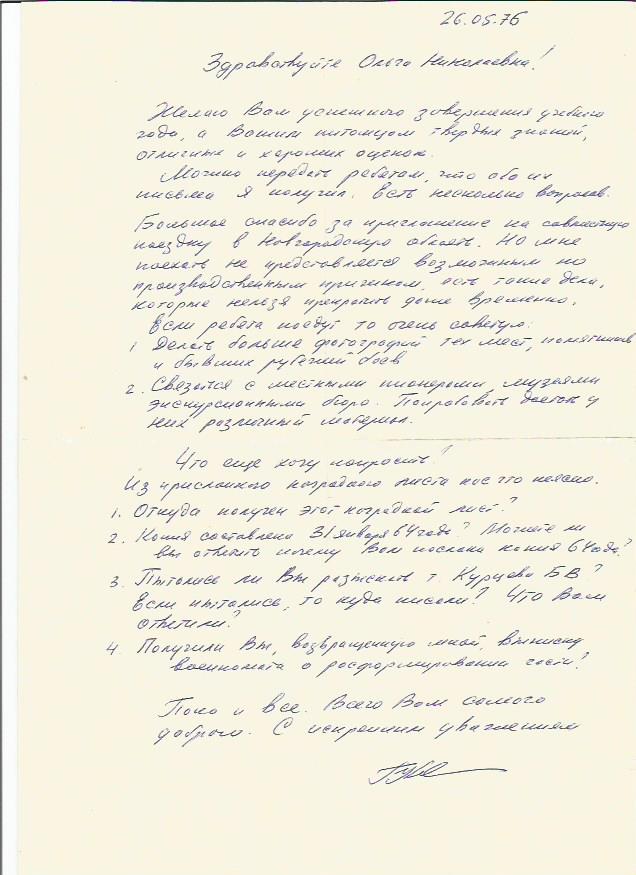 26.05.76
Здравствуйте Ольга Николаевна!
Желаю Вам успешного завершения учебного
года, а Вашим питомцам твердых знаний,
отличных и хороших оценок.
Можно передать ребятам, что оба их
письма я получил. Есть несколько вопросов.
Большое спасибо за приглашение на совместную
поездку в Новгородскую область. Но мне
поехать не представляется возможным по
производственным причинам, есть такие дела,
которые нельзя прекратить даже временно.
Если ребята поедут то очень советую:
1 Делать больше фотографий тех мест, памятников
и бывших рубежей боев
2. Связаться с местными пионерами, музеями
экскурсионными бюро. Попробовать достать у
них различный материал.
Что еще хочу попросить!
Из присланного наградного листа кое что неясно.
1. Откуда получен этот наградной лист?
2. Копия составлена 31 января 64 года? Можете ли
вы ответить почему Вам послана копия 64 года?
3. Пытались ли Вы разыскать т. Курцева БВ?
Если пытались, то куда писали? Что Вам
ответили?
4. Получили Вы, возвращенную мной, выписку
военкомата о расформировании части?
Пока и все. Всего Вам самого
доброго. С искренним уважением